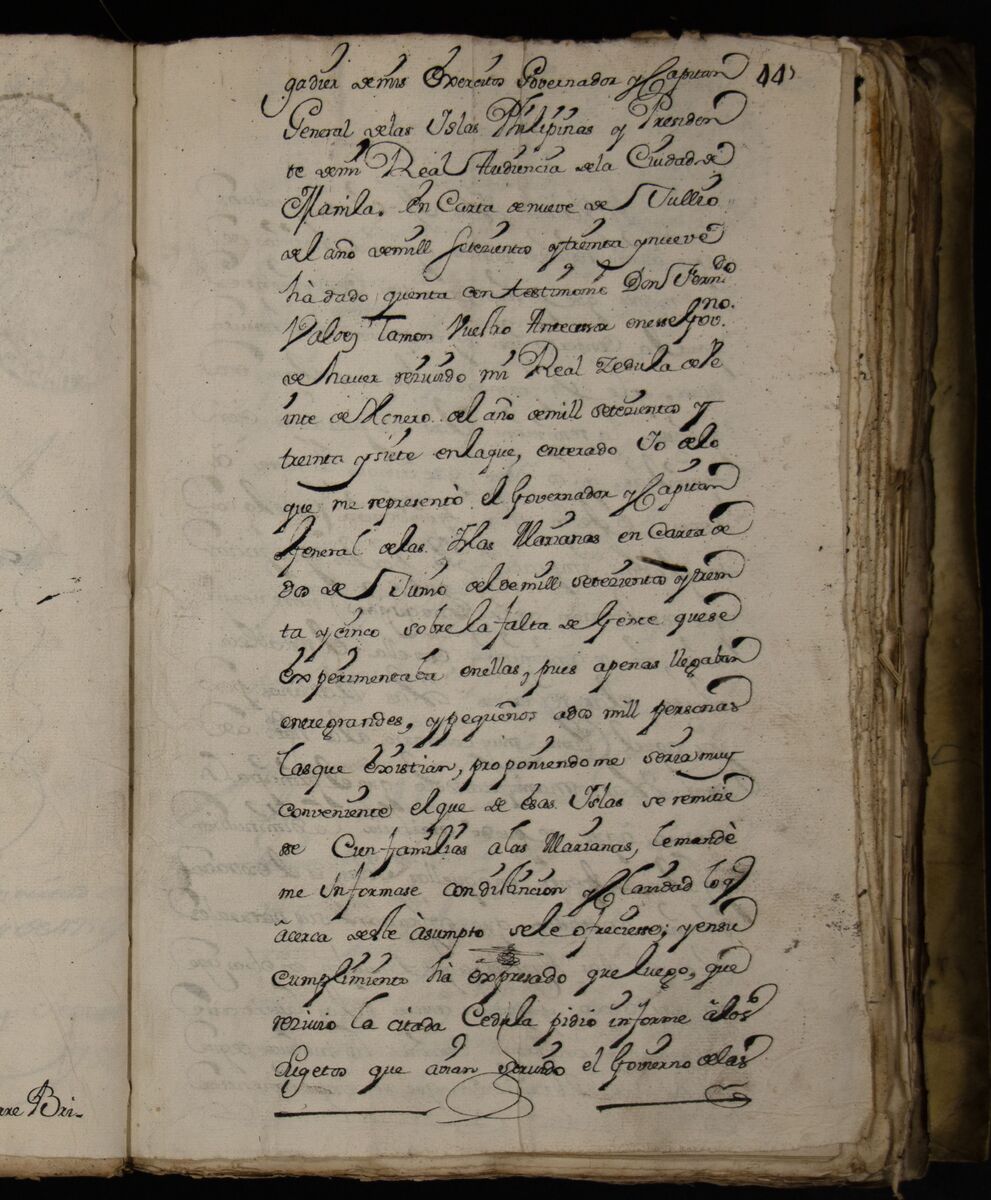 44
gadier de mis Exercitos Governador y Capitan
General de las Islas Philipinas y Presiden
te de mi Real Audiencia de la Ciudad de
Manila. En Carta de nueve de Jullio
del año de mill setezientos y treinta y nueve
hà dado quenta con testimonio Don Fern.do
Valdes Tamon Vuestro Antecesor en esse Gov.no
de haver rezivido mi Real Zedula de Ve
inte de Henero del año de mill setezientos y
treinta y siete en laque, enterado Yo de lo
que me representò el Governador y Capitan
General de las Islas Marianas en Carta de
dos de Junio del de mill setezientos y trein
ta y cinco sobre la falta de Gente que se
experimentaba en ellas, pues apenas llegaban
entre grandes, y pequeños ados mill personas
las que Existian, proponiendome seria muy
conveniente el que de esas Islas se remitie
se Cien familias a las Marianas, le mandè
me informase con distincion y Claridad lo q
àcerca de este àsumpto se le ofreciesse; y en su
cumplimiento hà expresado que luego, que
rezivio la citada Cedula pidio informe à los
Sugetos que avian servido el Govierno de las
are Bri-